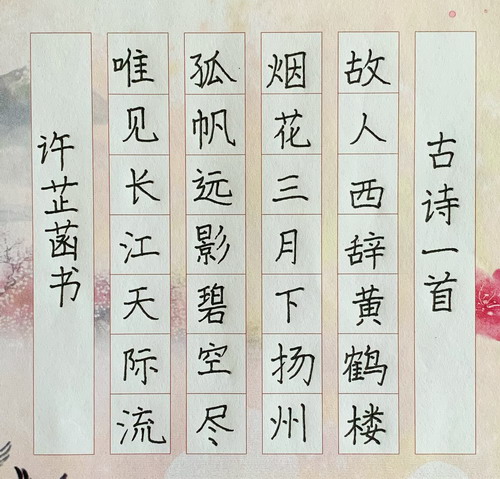 古诗一首
故人西辞黄鹤楼
烟花三月下扬州
孤帆远影碧空尽
唯见长江天际流
许芷菡书